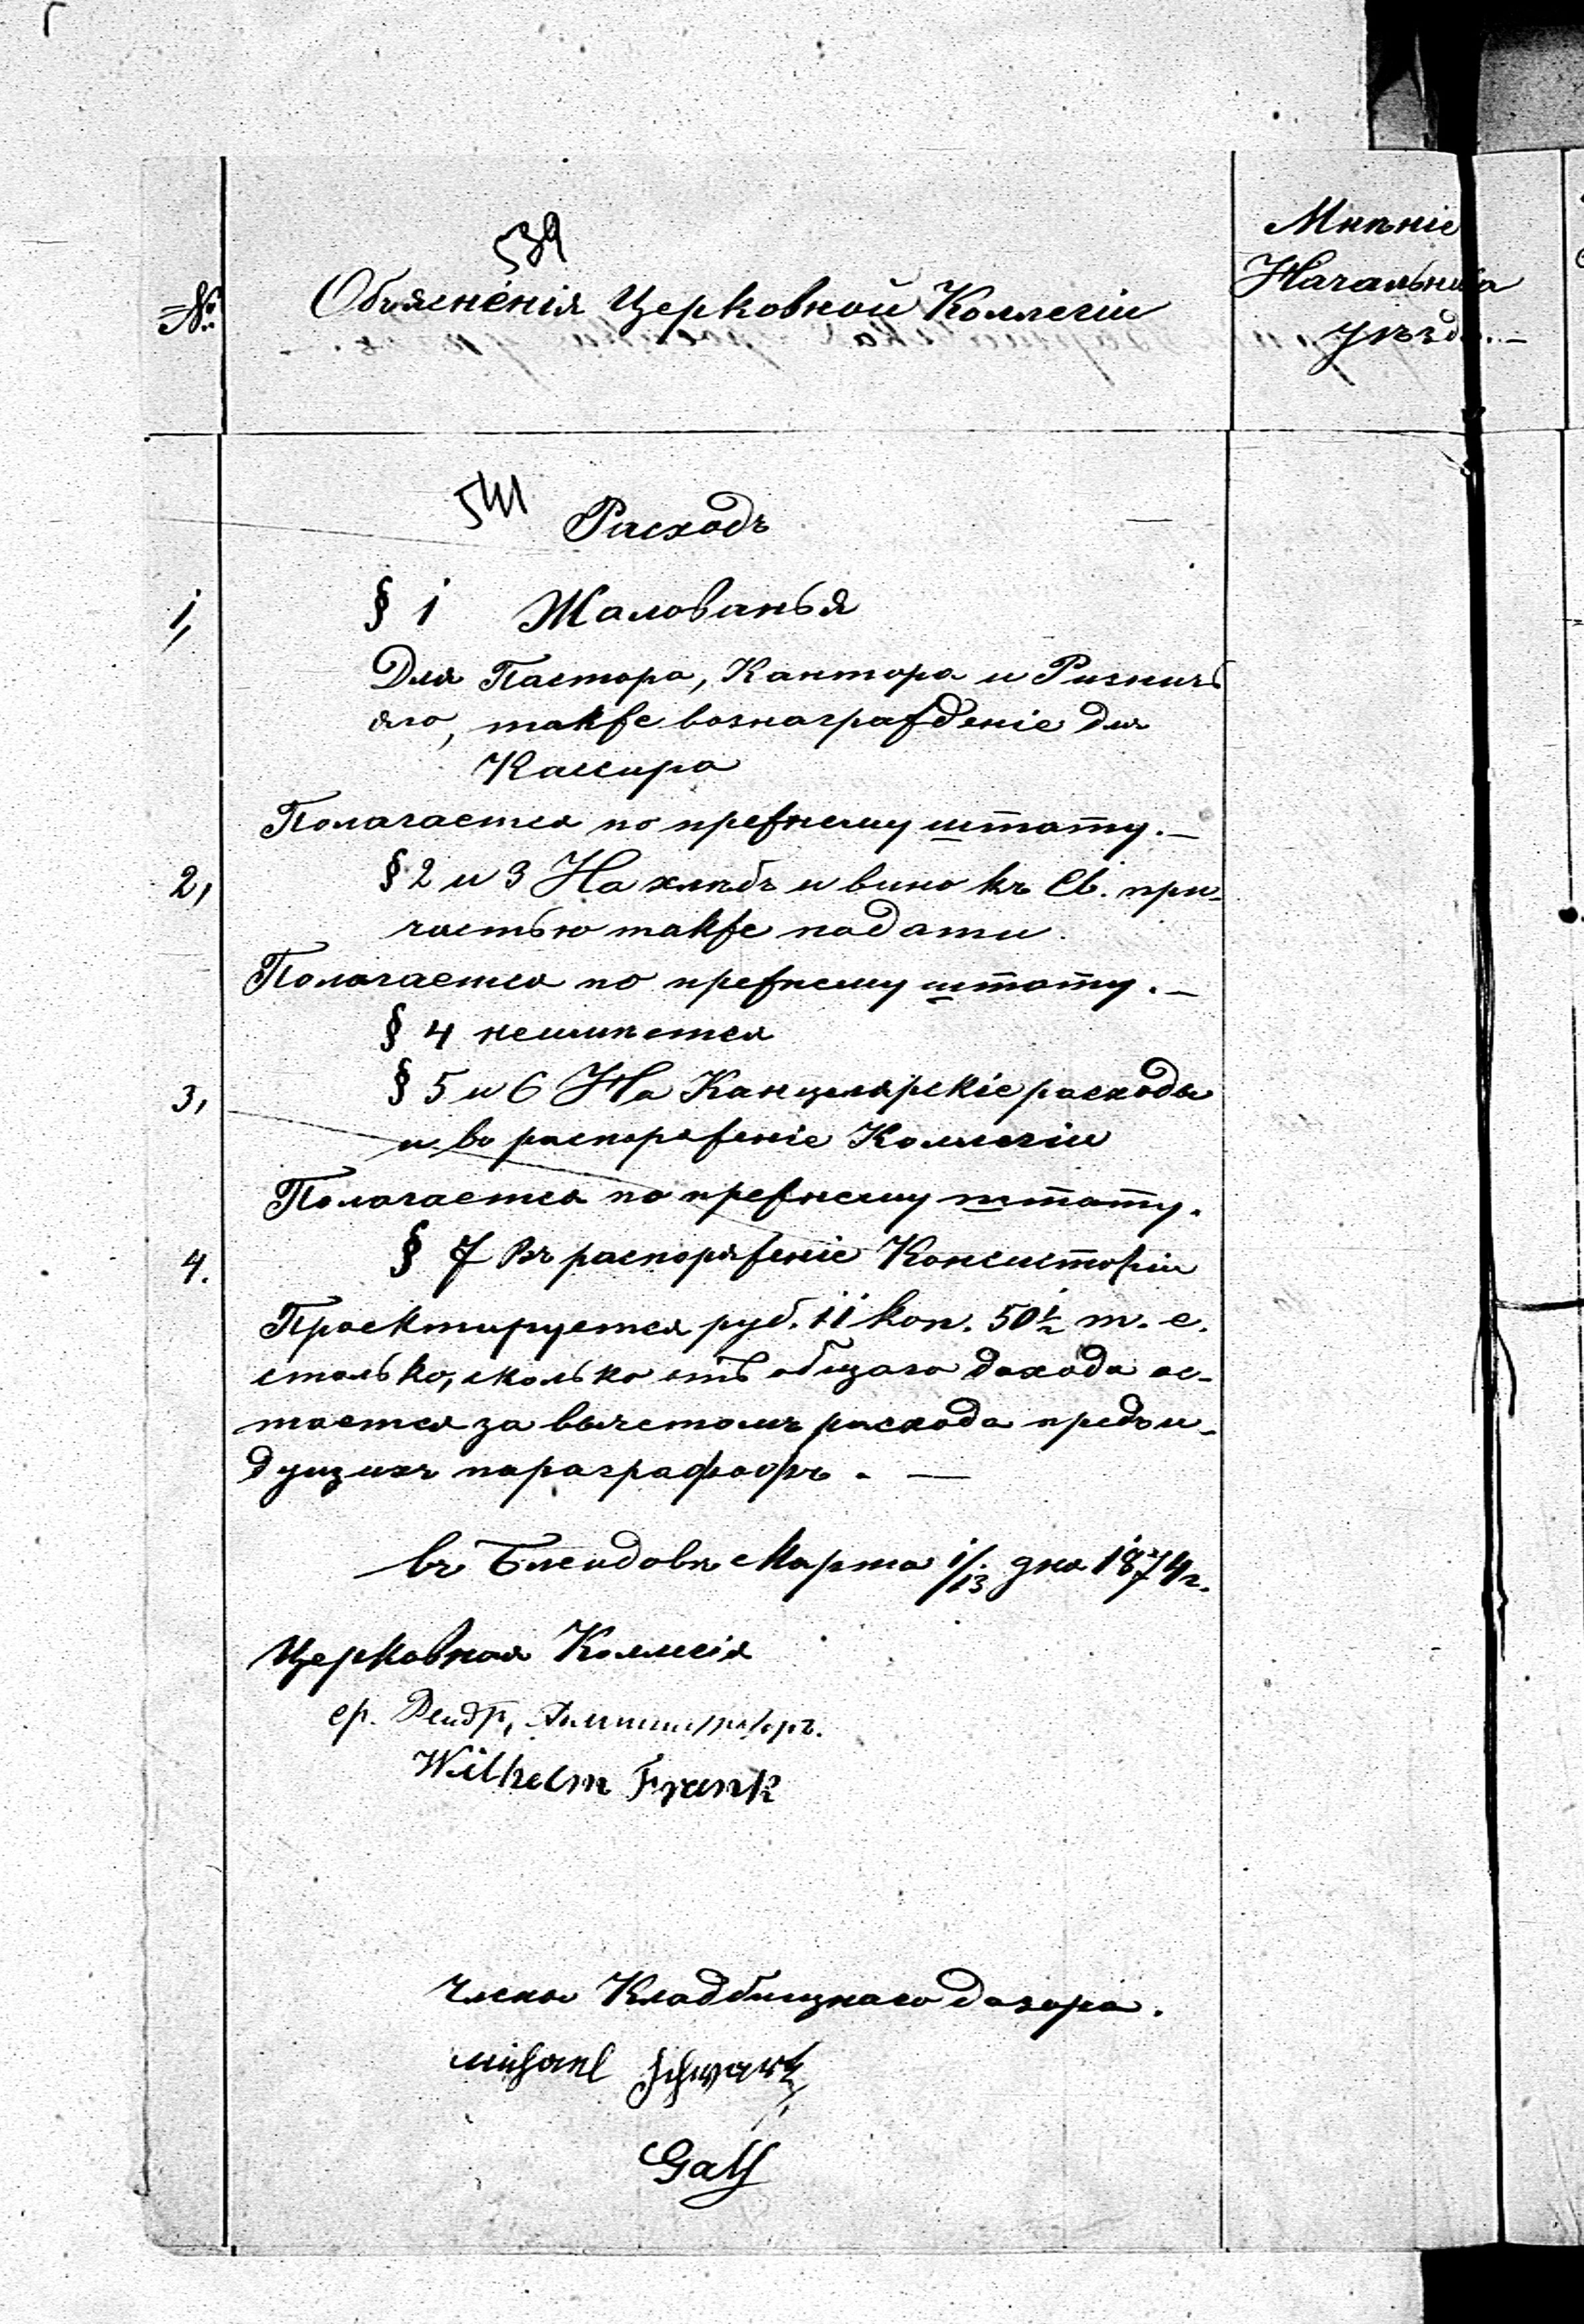 539
№
Объясненія Церковной Коллегіи
Мнѣніе
Начальника
уѣзда.—
541
Расходъ
1,
§ 1 Жалованья
Для Пастора, Кантора и Ризнич
яго, также вознагражденіе для
Кассира
Полагается по прежнему штату.—
2,
§ 2 и 3 На хлѣбъ и вино къ Св. при-
частью также подати.
Полагается по прежнему штату.—
§ 4 неимѣется
3,
§ 5 и 6 На Канцелярскіе расходы
и во распоряженіе Коллегіи
Полагается по прежнему штату.
4.
§ 7 Въ распоряженіе Консисторіи
Проектируется руб. 11 коп. 50½ т. е.
столько, сколько отъ общаго дохода ос-
тается за вычетомъ расхода предъи-
дущихъ параграфофъ. —
въ Блендовѣ Марта 1/13 дня 1874 г.
Церковная Коллегія
Администраторъ.
Wilhelm Frank
Члены Кладбищнаго дозора.
Michael Schwartz